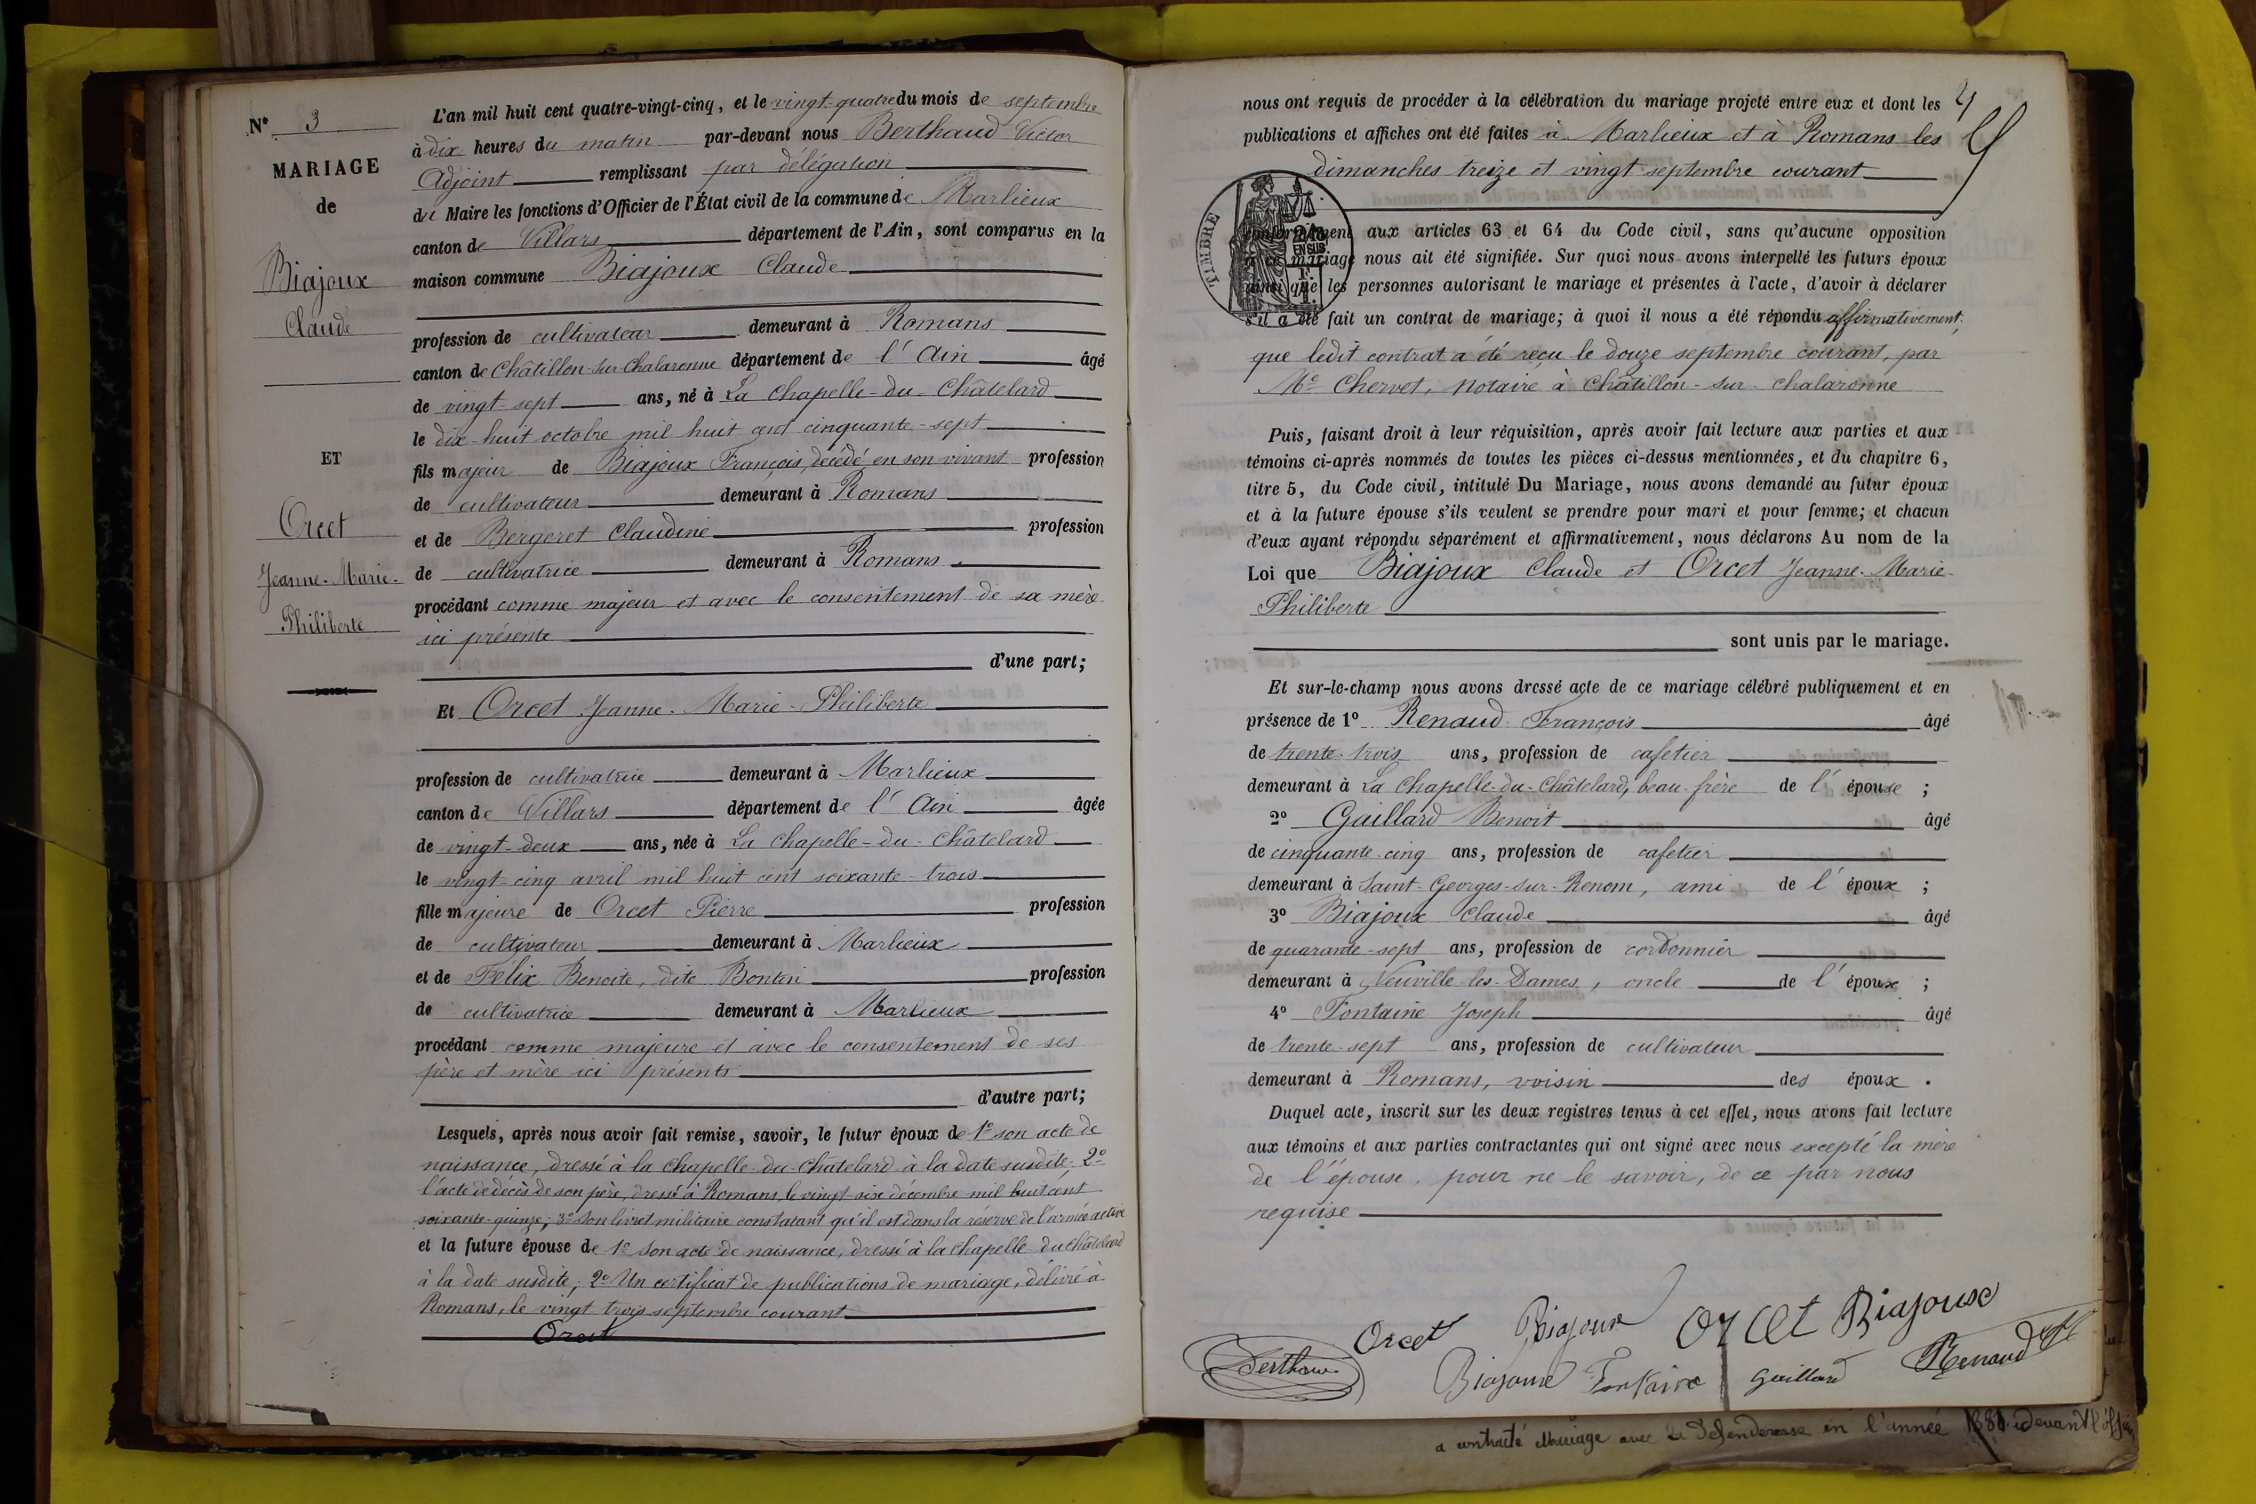 N° 3
MARIAGE
de
Biajoux
Claude
ET
Orcet
Jeanne-Marie-
Philiberte
L'an mil huit cent quatre-vingt-cinq, et le vingt-quatre du mois de septembre
à dix heures du matin par-devant nous Berthaud Victor
Adjoint remplissant par délégation
du Maire les fonctions d'Officier de l'État civil de la commune de Marlieux
canton de Villars département de l'Ain, sont comparus en la
maison commune Biajoux Claude
profession de cultivateur demeurant à Romans
canton de Châtillon-sur-Chalaronne département de l'Ain âgé
de vingt-sept ans, né à La Chapelle-du-Châtelard
le dix-huit octobre mil huit cent cinquante-sept
fils majeur de Biajoux François, décédé en son vivant profession
de cultivateur demeurant à Romans
et de Bergeret Claudine profession
de cultivatrice demeurant à Romans
procédant comme majeur et avec le consentement de sa mère
ici présente
d'une part;
Et Orcet Jeanne-Marie-Philiberte
profession de cultivatrice demeurant à Marlieux
canton de Villars département de l'Ain âgée
de vingt-deux ans, née à La Chapelle-du-Châtelard
le vingt-cinq avril mil huit cent soixante-trois
fille majeure de Orcet Pierre profession
de cultivateur demeurant à Marlieux
et de Félix Benoite, dite Bontin profession
de cultivatrice demeurant à Marlieux
procédant comme majeure et avec le consentement de ses
père et mère ici présents
d'autre part;
Lesquels, après nous avoir fait remise, savoir, le futur époux de 1° son acte de
naissance, dressé à la Chapelle-du-Châtelard à la date susdite; 2°
l'acte de décès de son père, dressé à Romans, le vingt-six décembre mil huit cent
soixante-quinze; 3° son livret militaire constatant qu'il est dans la réserve de l'armée active
et la future épouse de 1° son acte de naissance, dressé à la Chapelle-du-Châtelard
à la date susdite; 2° Un certificat de publications de mariage, délivré à
Romans, le vingt trois septembre courant
Orcet
4
nous ont requis de procéder à la célébration du mariage projeté entre eux et dont les
publications et affiches ont été faites à Marlieux et à Romans les
dimanches treize et vingt septembre courant
TIMBRE
EN SUS
conformément aux articles 63 et 64 du Code civil, sans qu'aucune opposition
à ce mariage nous ait été signifiée. Sur quoi nous avons interpellé les futurs époux
ainsi que les personnes autorisant le mariage et présentes à l'acte, d'avoir à déclarer
s'il a été fait un contrat de mariage; à quoi il nous a été répondu affirmativement;
que ledit contrat a été reçu le douze septembre courant, par
Me Chervet, notaire à Châtillon-sur-Chalaronne
Puis, faisant droit à leur réquisition, après avoir fait lecture aux parties et aux
témoins ci-après nommés de toutes les pièces ci-dessus mentionnées, et du chapitre 6,
titre 5, du Code civil, intitulé Du Mariage, nous avons demandé au futur époux
et à la future épouse s'ils veulent se prendre pour mari et pour femme; et chacun
d'eux ayant répondu séparément et affirmativement, nous déclarons Au nom de la
Loi que Biajoux Claude et Orcet Jeanne-Marie-
Philiberte
sont unis par le mariage.
Et sur-le-champ nous avons dressé acte de ce mariage célébré publiquement et en
présence de 1° Renaud François âgé
de trente-trois ans, profession de cafetier
demeurant à La Chapelle-du-Châtelard, beau-frère de l'épouse ;
2° Gaillard Benoit âgé
de cinquante-cinq ans, profession de cafetier
demeurant à Saint-Georges-sur-Renom, ami de l'époux ;
3° Biajoux Claude âgé
de quarante-sept ans, profession de cordonnier
demeurant à Neuville-les-Dames, oncle de l'époux ;
4° Fontaine Joseph âgé
de trente-sept ans, profession de cultivateur
demeurant à Romans, voisin des époux .
Duquel acte, inscrit sur les deux registres tenus à cet effet, nous avons fait lecture
aux témoins et aux parties contractantes qui ont signé avec nous excepté la mère
de l'épouse, pour ne le savoir, de ce par nous
requise
Orcet Biajoux Orcet Biajoux
Berthaud Biajoux Fontaine Gaillard Renaud
a contracté Mariage avec la Défenderesse en l'année devant l'